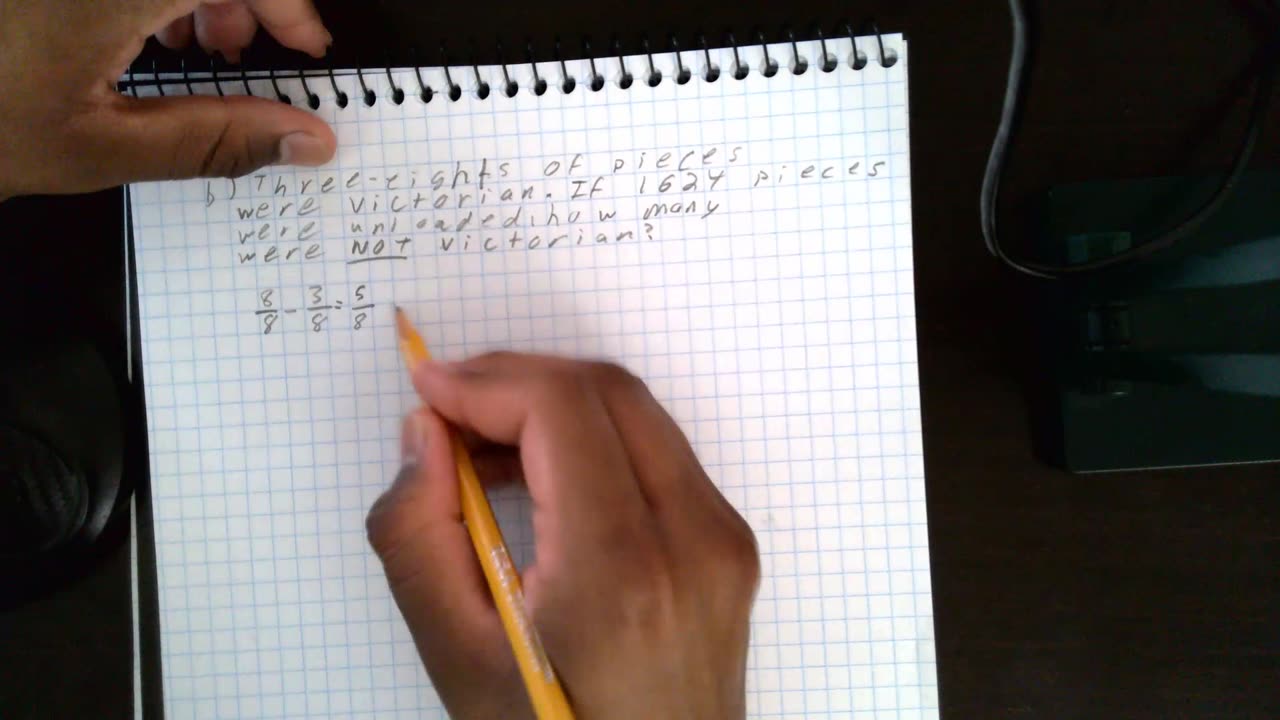 b) Three-eights of pieces
were victorian. If 1624 pieces
were unloaded, how many
were NOT victorian?
8/8 - 3/8 = 5/8